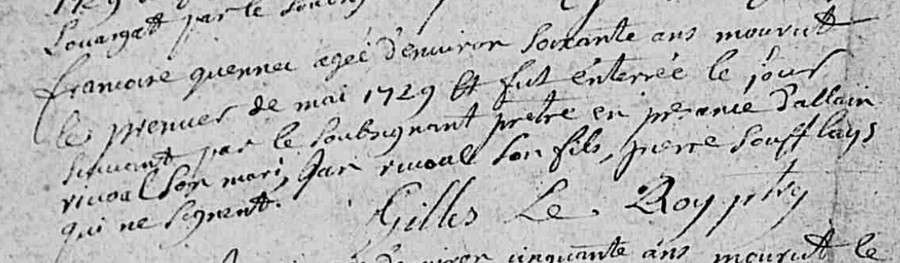 1729
Louargat par le soubsig
francoise quennec agée d'environ soixante ans mourut
le premier de mai 1729 et fut enterrée le jour
suivant par le soubsignant pretre en presance d'allain
rivoal son mari, Jan rivoal son fils, pierre soufflays
qui ne signent.
Gilles Le Roy ptre
d'environ cinquante ans mourut le